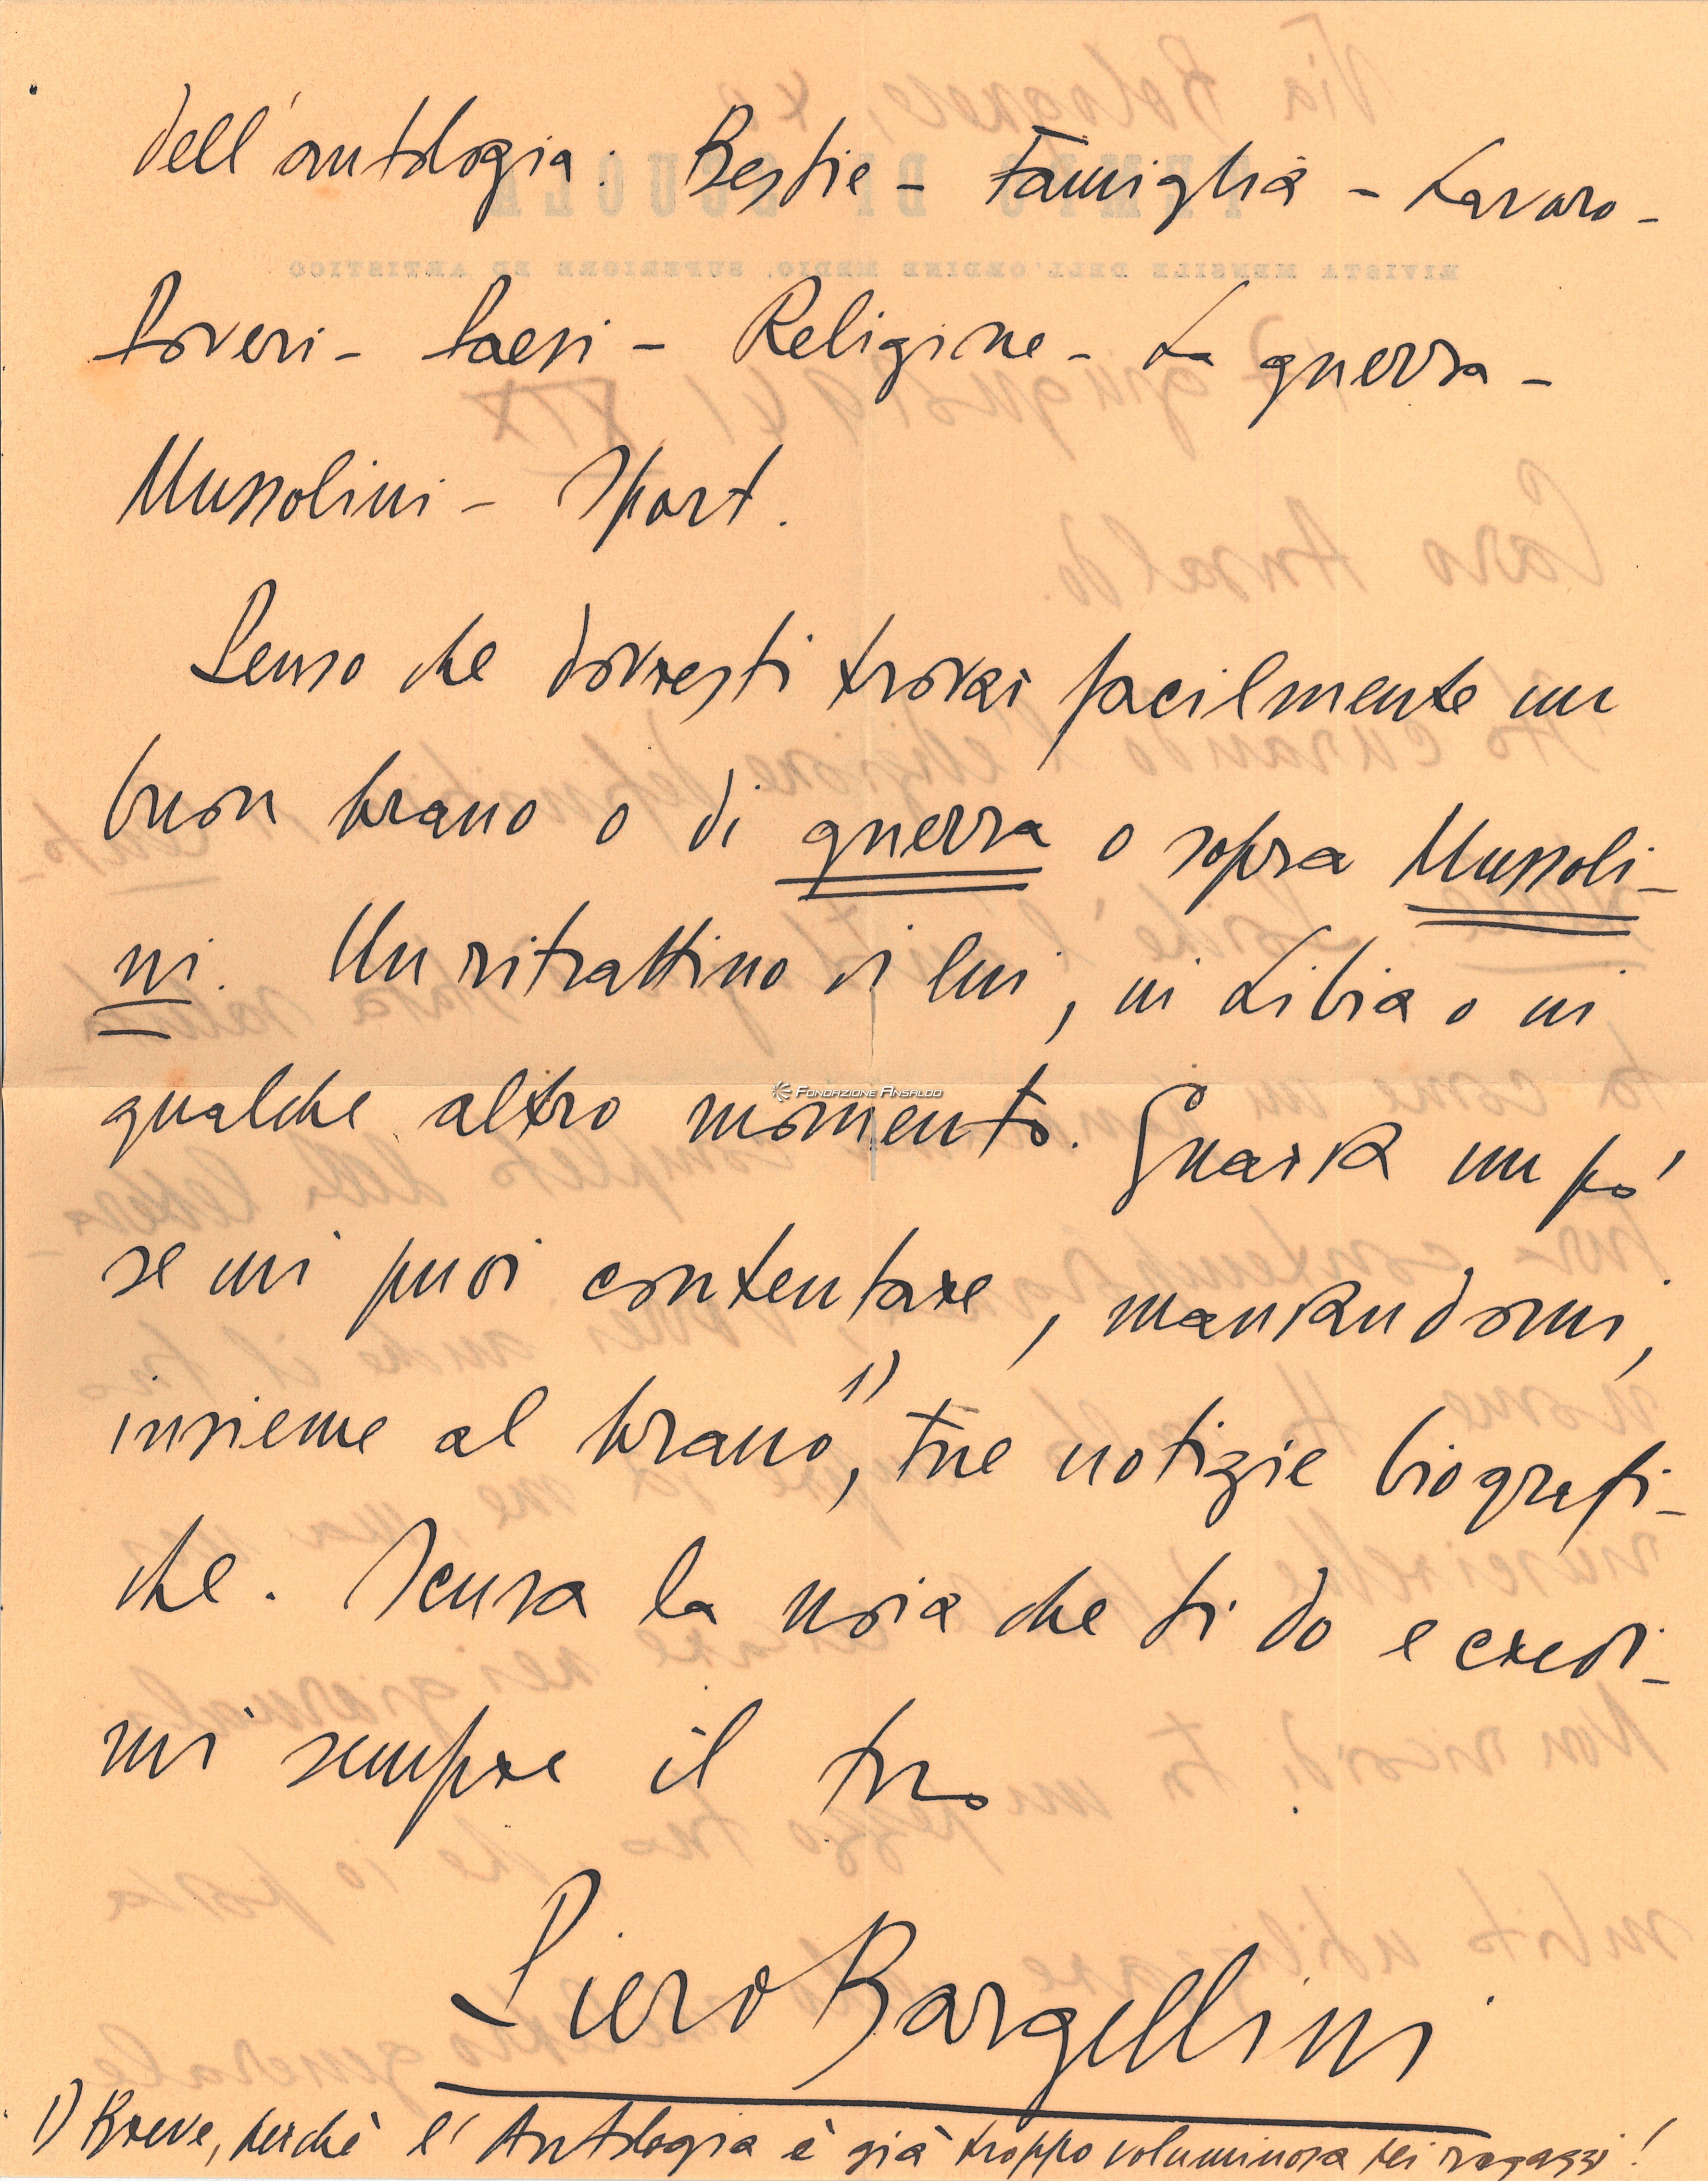 dell'antologia: Bestie - Famiglia - Lavoro -
Poveri - Paesi - Religione - La guerra -
Mussolini - Sport.
Penso che dovresti trovar facilmente un
buon brano o di guerra o sopra Mussoli-
ni. Un ritrattino di lui, in Libia o in
qualche altro momento. Guarda un po'
se mi puoi contentare, mandandomi,
insieme al brano 1), tue notizie biografi-
che. Scusa la noia che ti do e credi-
mi sempre il tuo
Piero Bargellini
1) Breve, perchè l'Antologia è già troppo voluminosa pei ragazzi!
FONDAZIONE ANSALDO